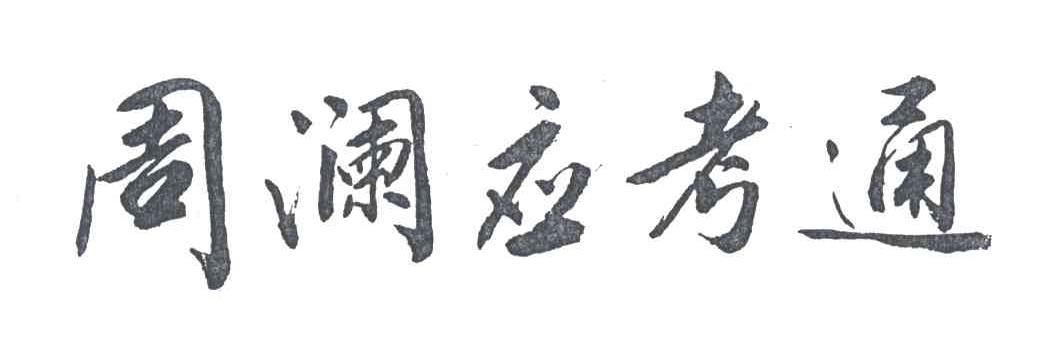 周澜应考通